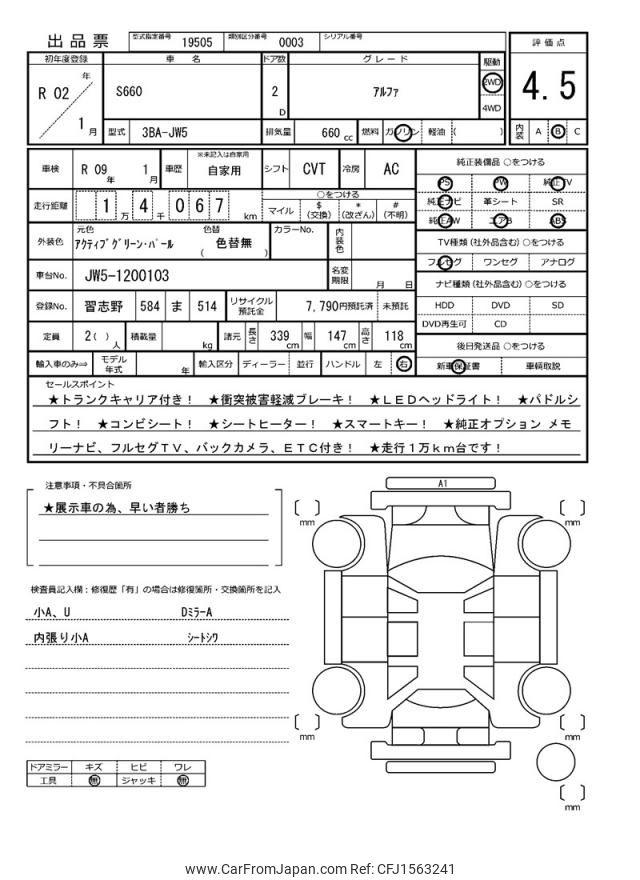 出品票 型式指定番号 19505 類別区分番号 0003 シリアル番号
評価点
初年度登録 車名 ドア数 グレード 駆動
R 02 年 1 月 S660 2 D アルファ 2WD 4WD
4.5
型式 3BA-JW5 排気量 660 cc 燃料 ガソリン 軽油 ( )
内装 A B C
車検 R 09 年 1 月 車歴 ※未記入は自家用 自家用 シフト CVT 冷房 AC
純正装備品 ○をつける
PS PW 純正TV
純正ナビ 革シート SR
純正AW エアB ABS
走行距離 1 万 4 千 0 6 7 km
○をつける
マイル $ (交換) * (改ざん) # (不明)
外装色 元色 アクティブグリーン・パール 色替 ( 色替無 ) カラーNo. 内装色
TV種類 (社外品含む) ○をつける
フルセグ ワンセグ アナログ
車台No. JW5-1200103 名変期限 月 日
ナビ種類 (社外品含む) ○をつける
HDD DVD SD
DVD再生可 CD
登録No. 習志野 584 ま 514 リサイクル預託金 7,790円預託済 未預託
定員 2( ) 人 積載量 kg 諸元 長さ 339 cm 幅 147 cm 高さ 118 cm
後日発送品 ○をつける
新車保証書 車輌取説
輸入車のみ⇒ モデル年式 年 輸入区分 ディーラー 並行 ハンドル 左 右
セールスポイント
★トランクキャリア付き! ★衝突被害軽減ブレーキ! ★LEDヘッドライト! ★パドルシ
フト! ★コンビシート! ★シートヒーター! ★スマートキー! ★純正オプション メモ
リーナビ、フルセグTV、バックカメラ、ETC付き! ★走行1万km台です!
注意事項・不具合箇所
★展示車の為、早い者勝ち
検査員記入欄:修復歴「有」の場合は修復箇所・交換箇所を記入
小A、U DミラーA
内張り小A シートシワ
A1
mm
mm
mm
mm
mm
ドアミラー キズ ヒビ ワレ
工具 無 ジャッキ 無
www.CarFromJapan.com Ref: CFJ1563241